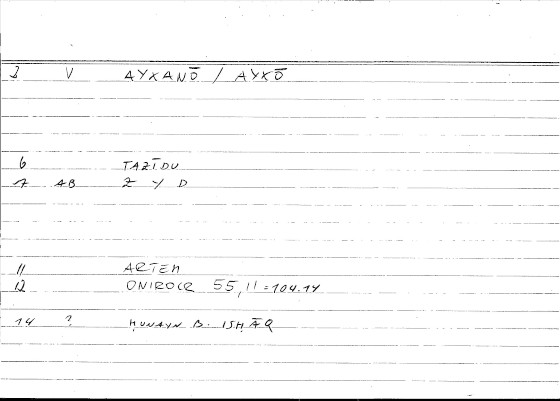 3 V AYXANŌ / AYXŌ
6 TAZĪDU
7 AB Z Y D
11 ARTEM
12 ONIROCR 55,11=104.14
14 ? ḤUNAYN B. ISḤĀQ